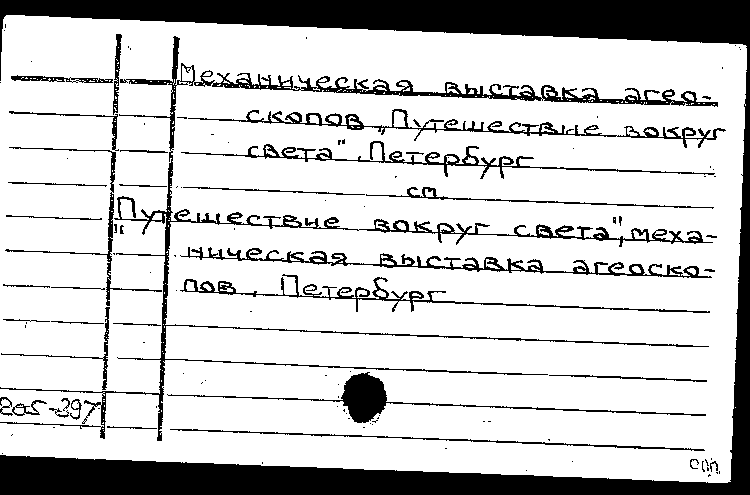 Механическая выставка агео-
скопов „Путешествие вокруг
света". Петербург
см.
"Путешествие вокруг света", меха-
ническая выставка агеоско-
пов. Петербург
205-397